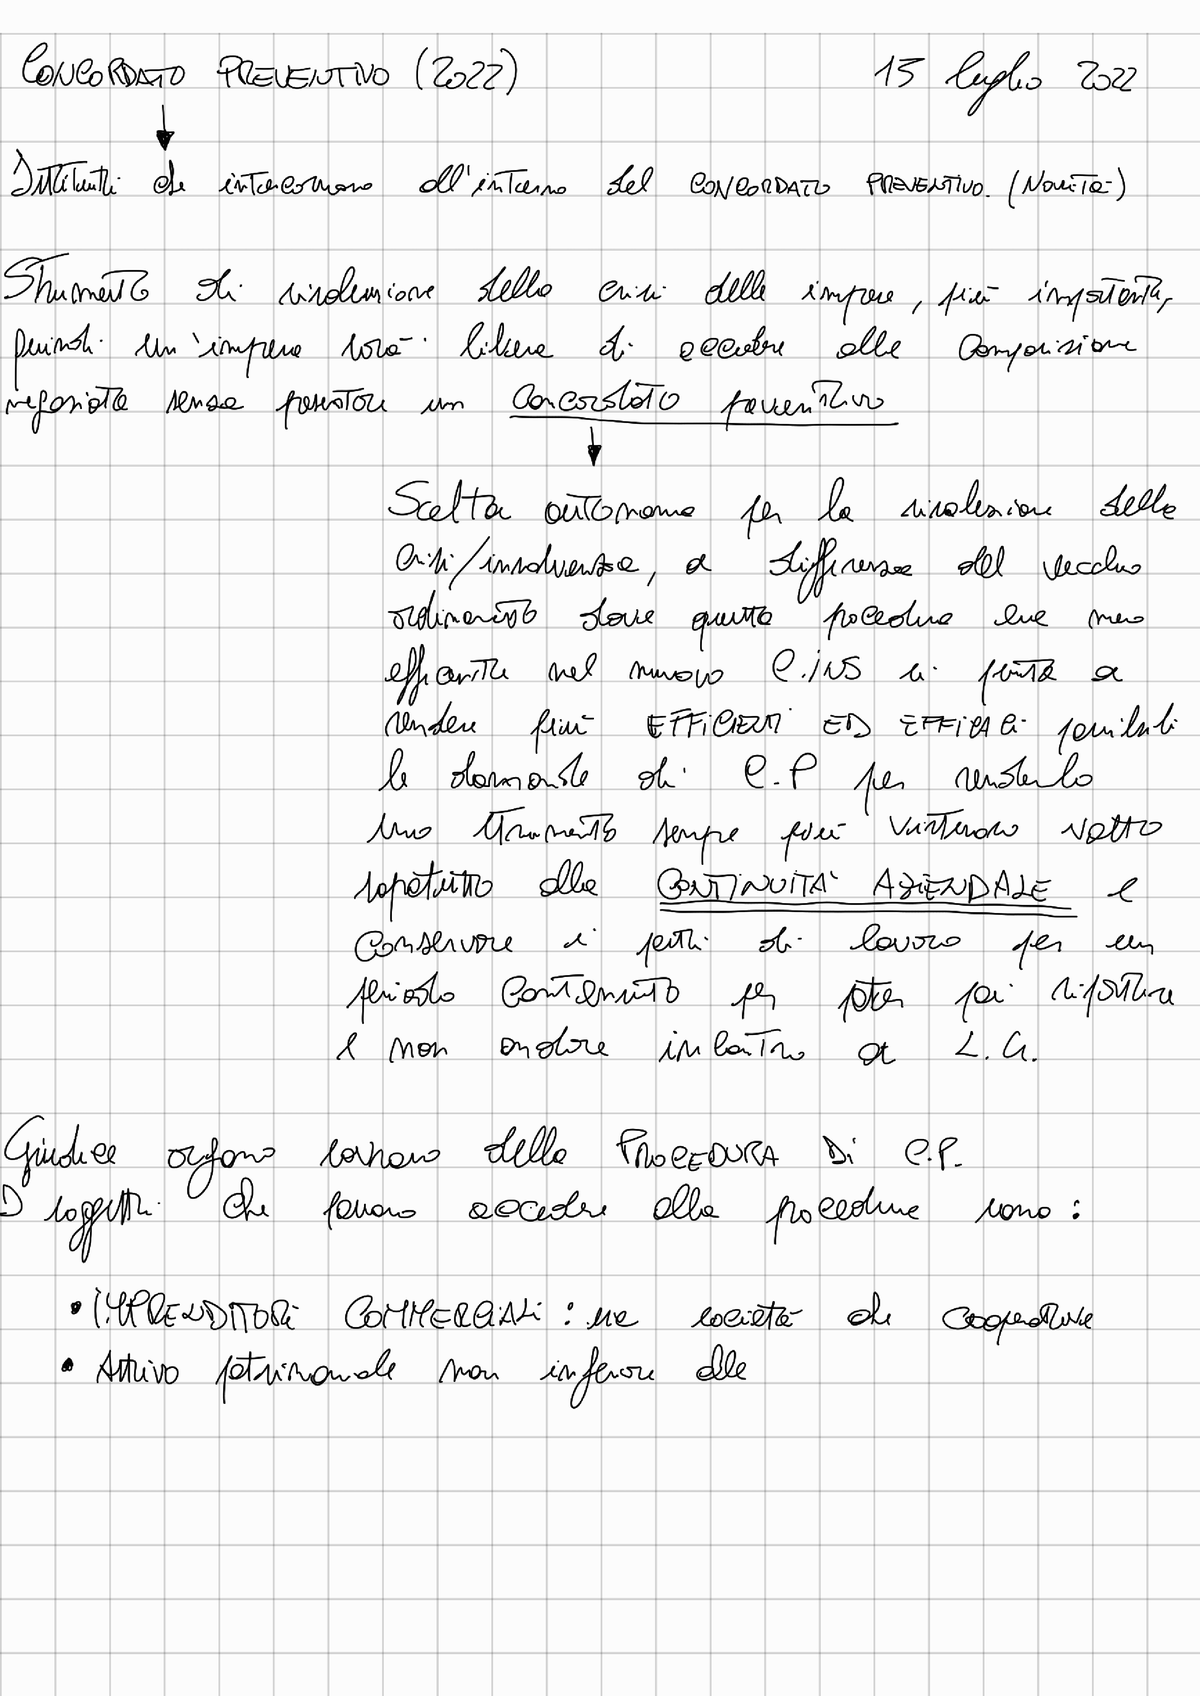 CONCORDATO PREVENTIVO (2022) 15 luglio 2022
Istituti che intercorrono all'interno del CONCORDATO PREVENTIVO. (Novità)
Strumento di risoluzione della crisi delle imprese, più importante,
quindi un'impresa sarà libera di accedere alla Composizione
negoziata senza presentare un Concordato preventivo
Scelta autonoma per la risoluzione della
crisi/insolvenza, a differenza del vecchio
ordinamento dove questa procedura era meno
efficiente nel nuovo C.INS si punta a
rendere più EFFICIENTI ED EFFICACI possibili
le domande di C.P per renderlo
uno strumento sempre più virtuoso volto
soprattutto alla CONTINUITÀ AZIENDALE e
conservare i posti di lavoro per un
periodo contenuto per poter poi ripartire
e non andare incontro a L.G.
Giudice organo sovrano della PROCEDURA Di C.P.
I soggetti che possono accedere alla procedura sono:
• IMPRENDITORI COMMERCIALI: sia società che cooperative
• Attivo patrimoniale non inferiore alle